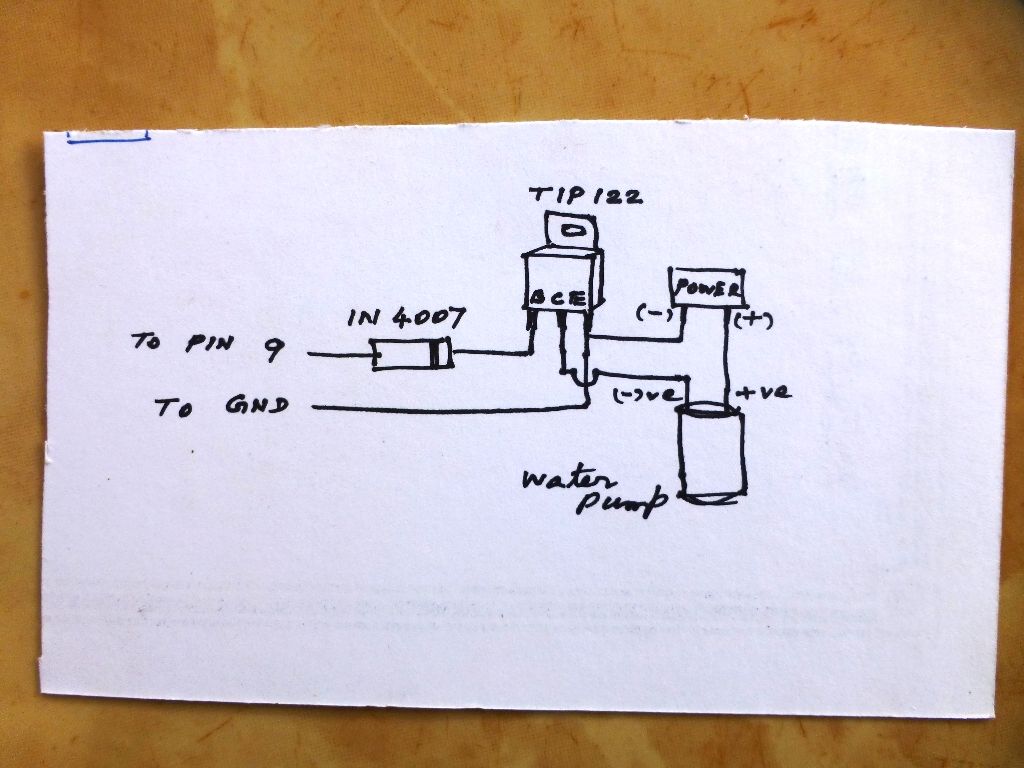 TIP 122
B C E
POWER
IN 4007
(-) (+)
TO PIN 9
(-)ve +ve
TO GND
Water
Pump